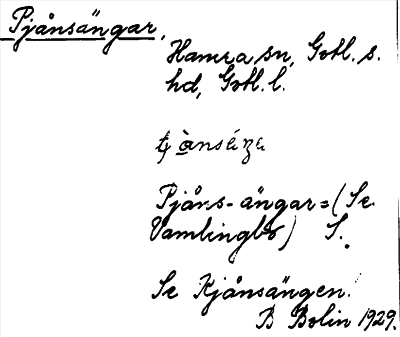 Pjånsängar,
Hamra sn, Gotl. s.
hd, Gotl. l.
Pjåns-ängar = (Se
Vamlingbo) S.
Se Kjånsängen!
B Bolin 1929.